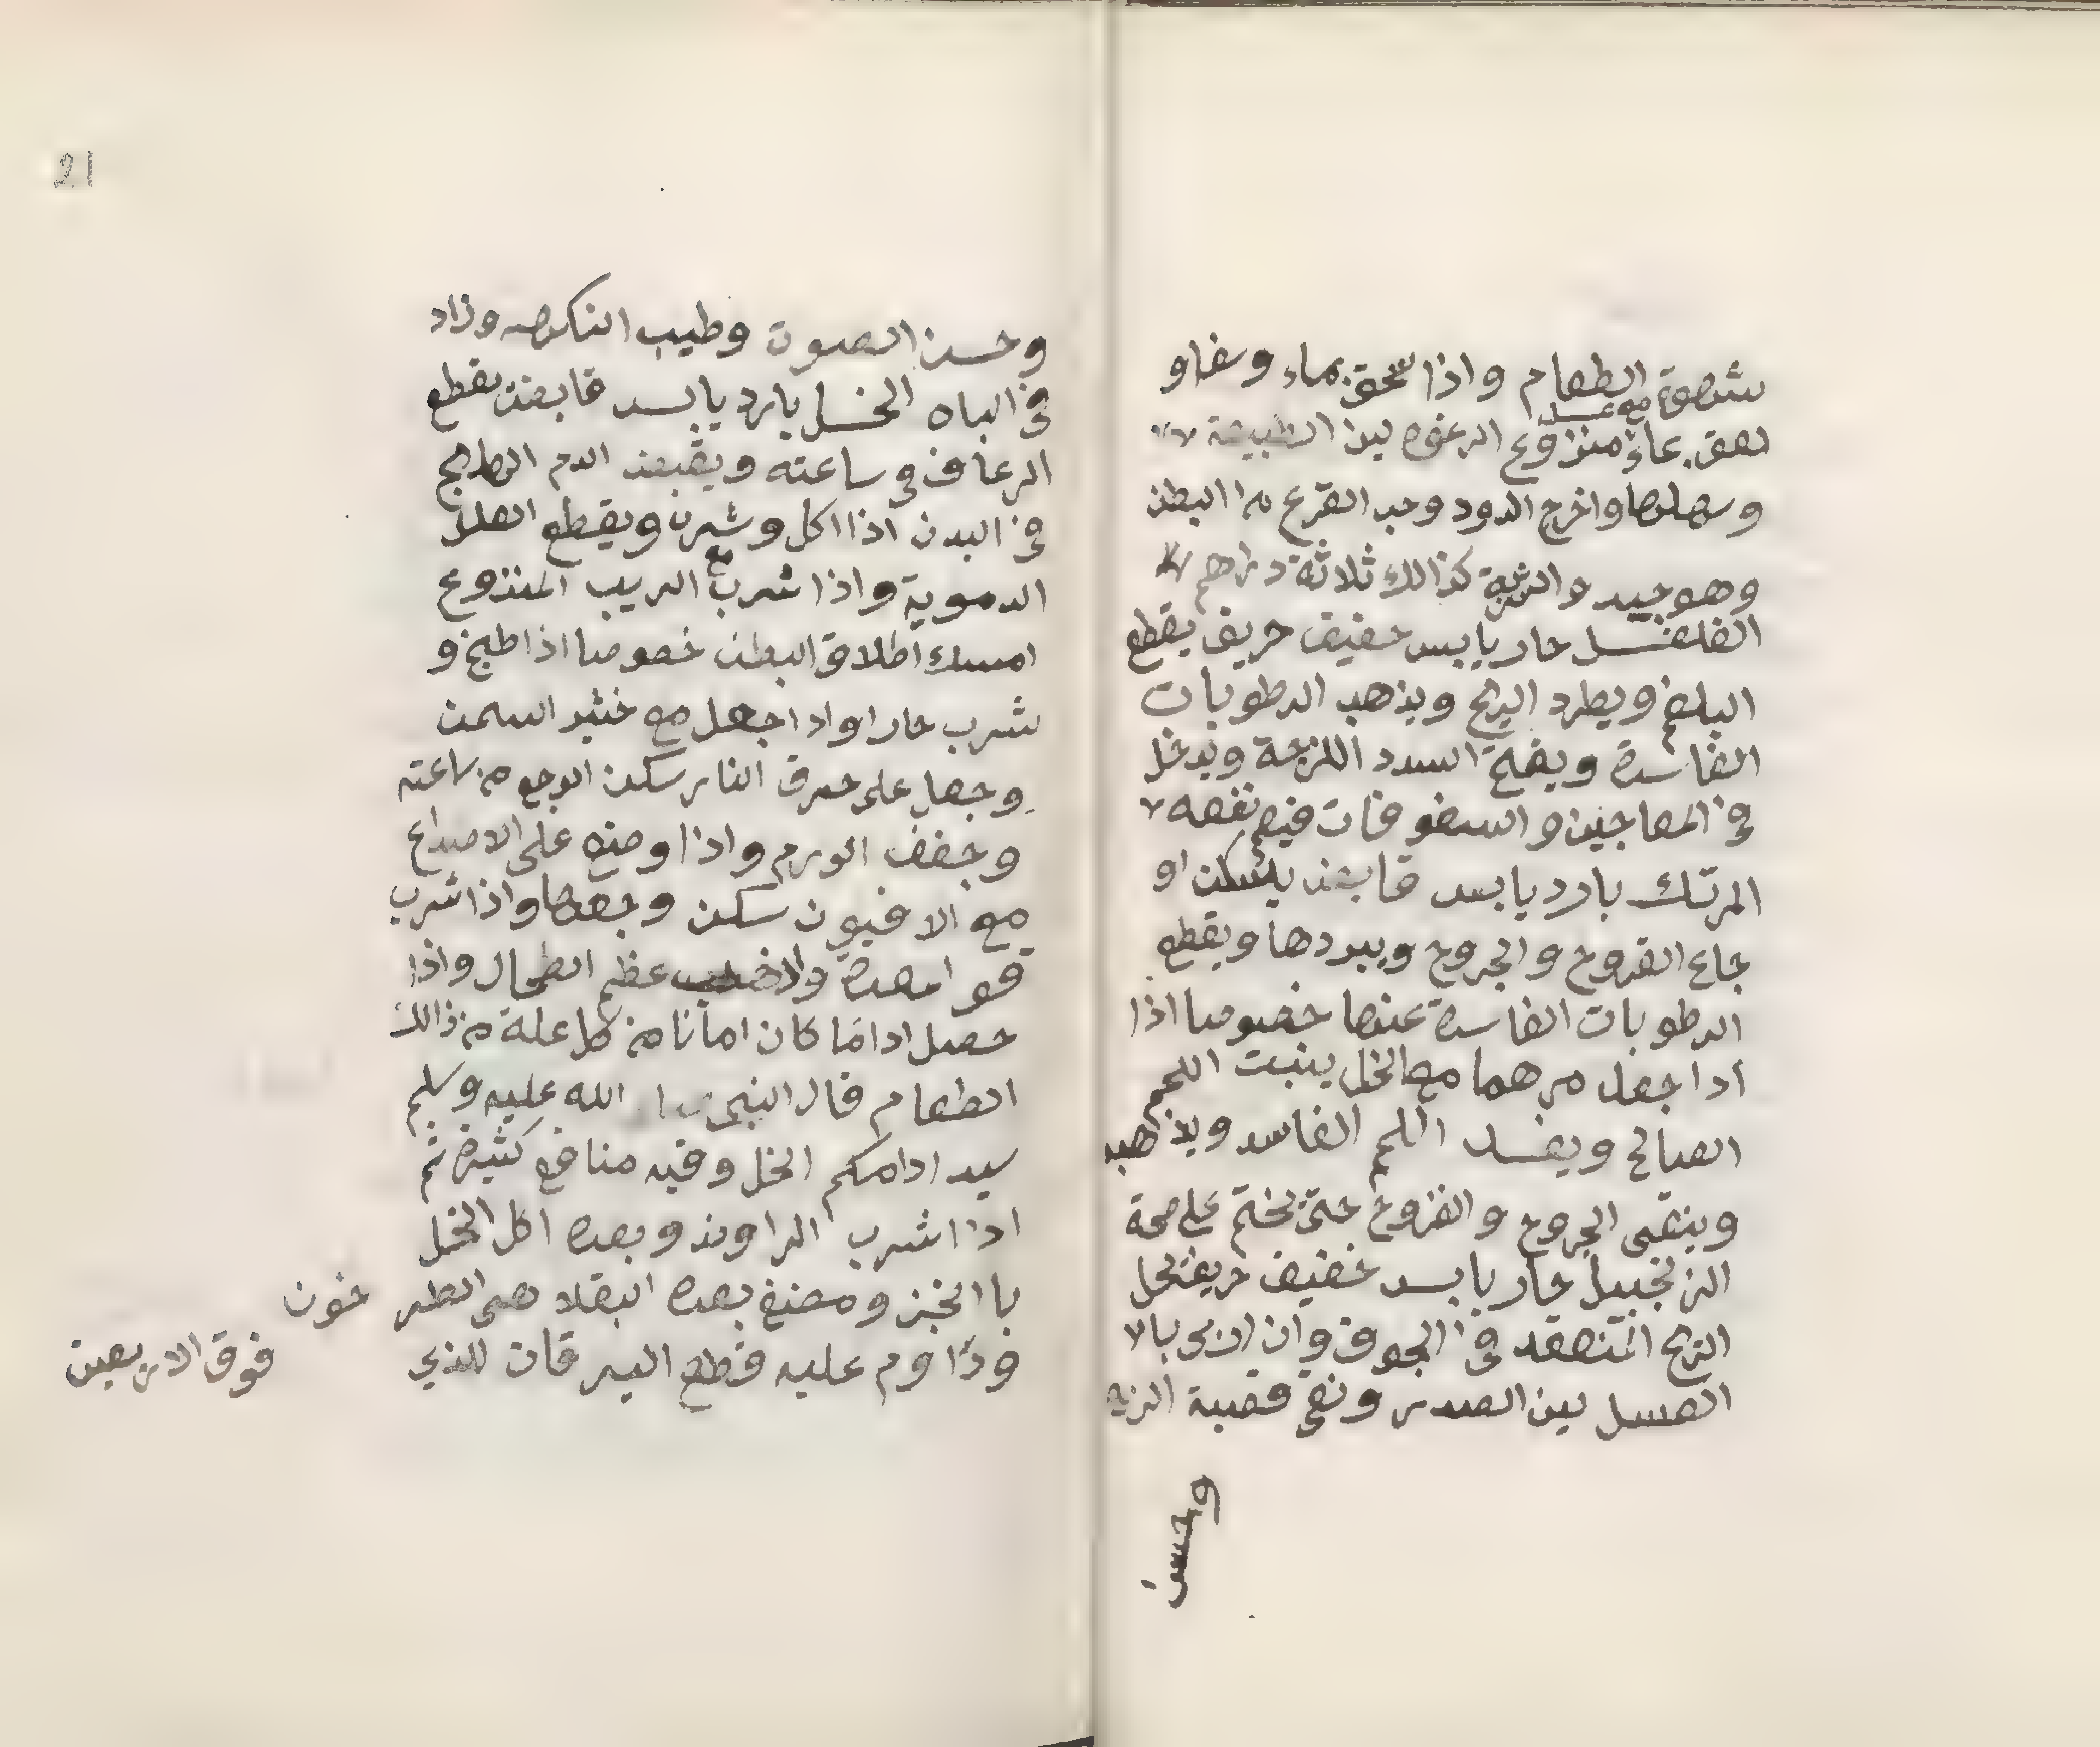 شهوة الطعام واذا سحق بماء وسفا و
لعق بماء منزوع الرغوه لين الطبيعة
مع عسل
وسهلها واخرج الدود وحب القرع من البطن
وهو جيد والشربة كذالك ثلاثة دراهم
الفلفل حار يابس خفيف حريف يقطع
البلغم ويطرد الريح ويذهب الرطوبات
الفاسدة ويفتح السدد اللزجة ويدخل
في المعاجين والسفوفات فيعم نفعه
المرتك بارد يابس قابض يسكن او
جاع القروح والجروح ويبردها ويقطع
الرطوبات الفاسدة عنها خصوصا اذا
اذا جعل مرهما مع الخل ينبت اللحم
الصالح ويفسد اللحم الفاسد ويذهبه
وينقى الجروح والقروح حتى تختم على صحة
الزنجبيل حار يابس خفيف حريف يحل
الريح المنعقد في الجوف وان ربى بالا
العسل لين الصدر ونقى قصبة الريه
وحسن
21
وحسن الصوت وطيب النكهه وزاد
في الباه الخل بارد يابس قابض يقطع
الرعاف في ساعته ويقبض الدم الطالع
في البدن اذا اكل وشرب ويقطع العلل
الدموية واذا شرب مع الزبيب المنزوع
امسك اطلاق البطن خصوصا اذا طبخ و
شرب حارا واذا جعل مع خثير السمن
وجعل على حرق النار سكن الوجع من ساعته
وجفف الورم واذا وضع على الاصداع
مع الافيون سكن وجعها واذا شرب
قوا المعدة عظم الطحال واذا
حصل اداما كان امانا من كل علة من ذالك
الطعام قال النبى صلى الله عليه وسلم
سيد ادامكم الخل وفيه منافع كثيرة ثم
اذا شرب الراوند وبعده اكل الخل
با الخبز ومضغ بعده البقلا هى الطر خون
وداوم عليه قطع اليرقان للذي فوق الاربعين